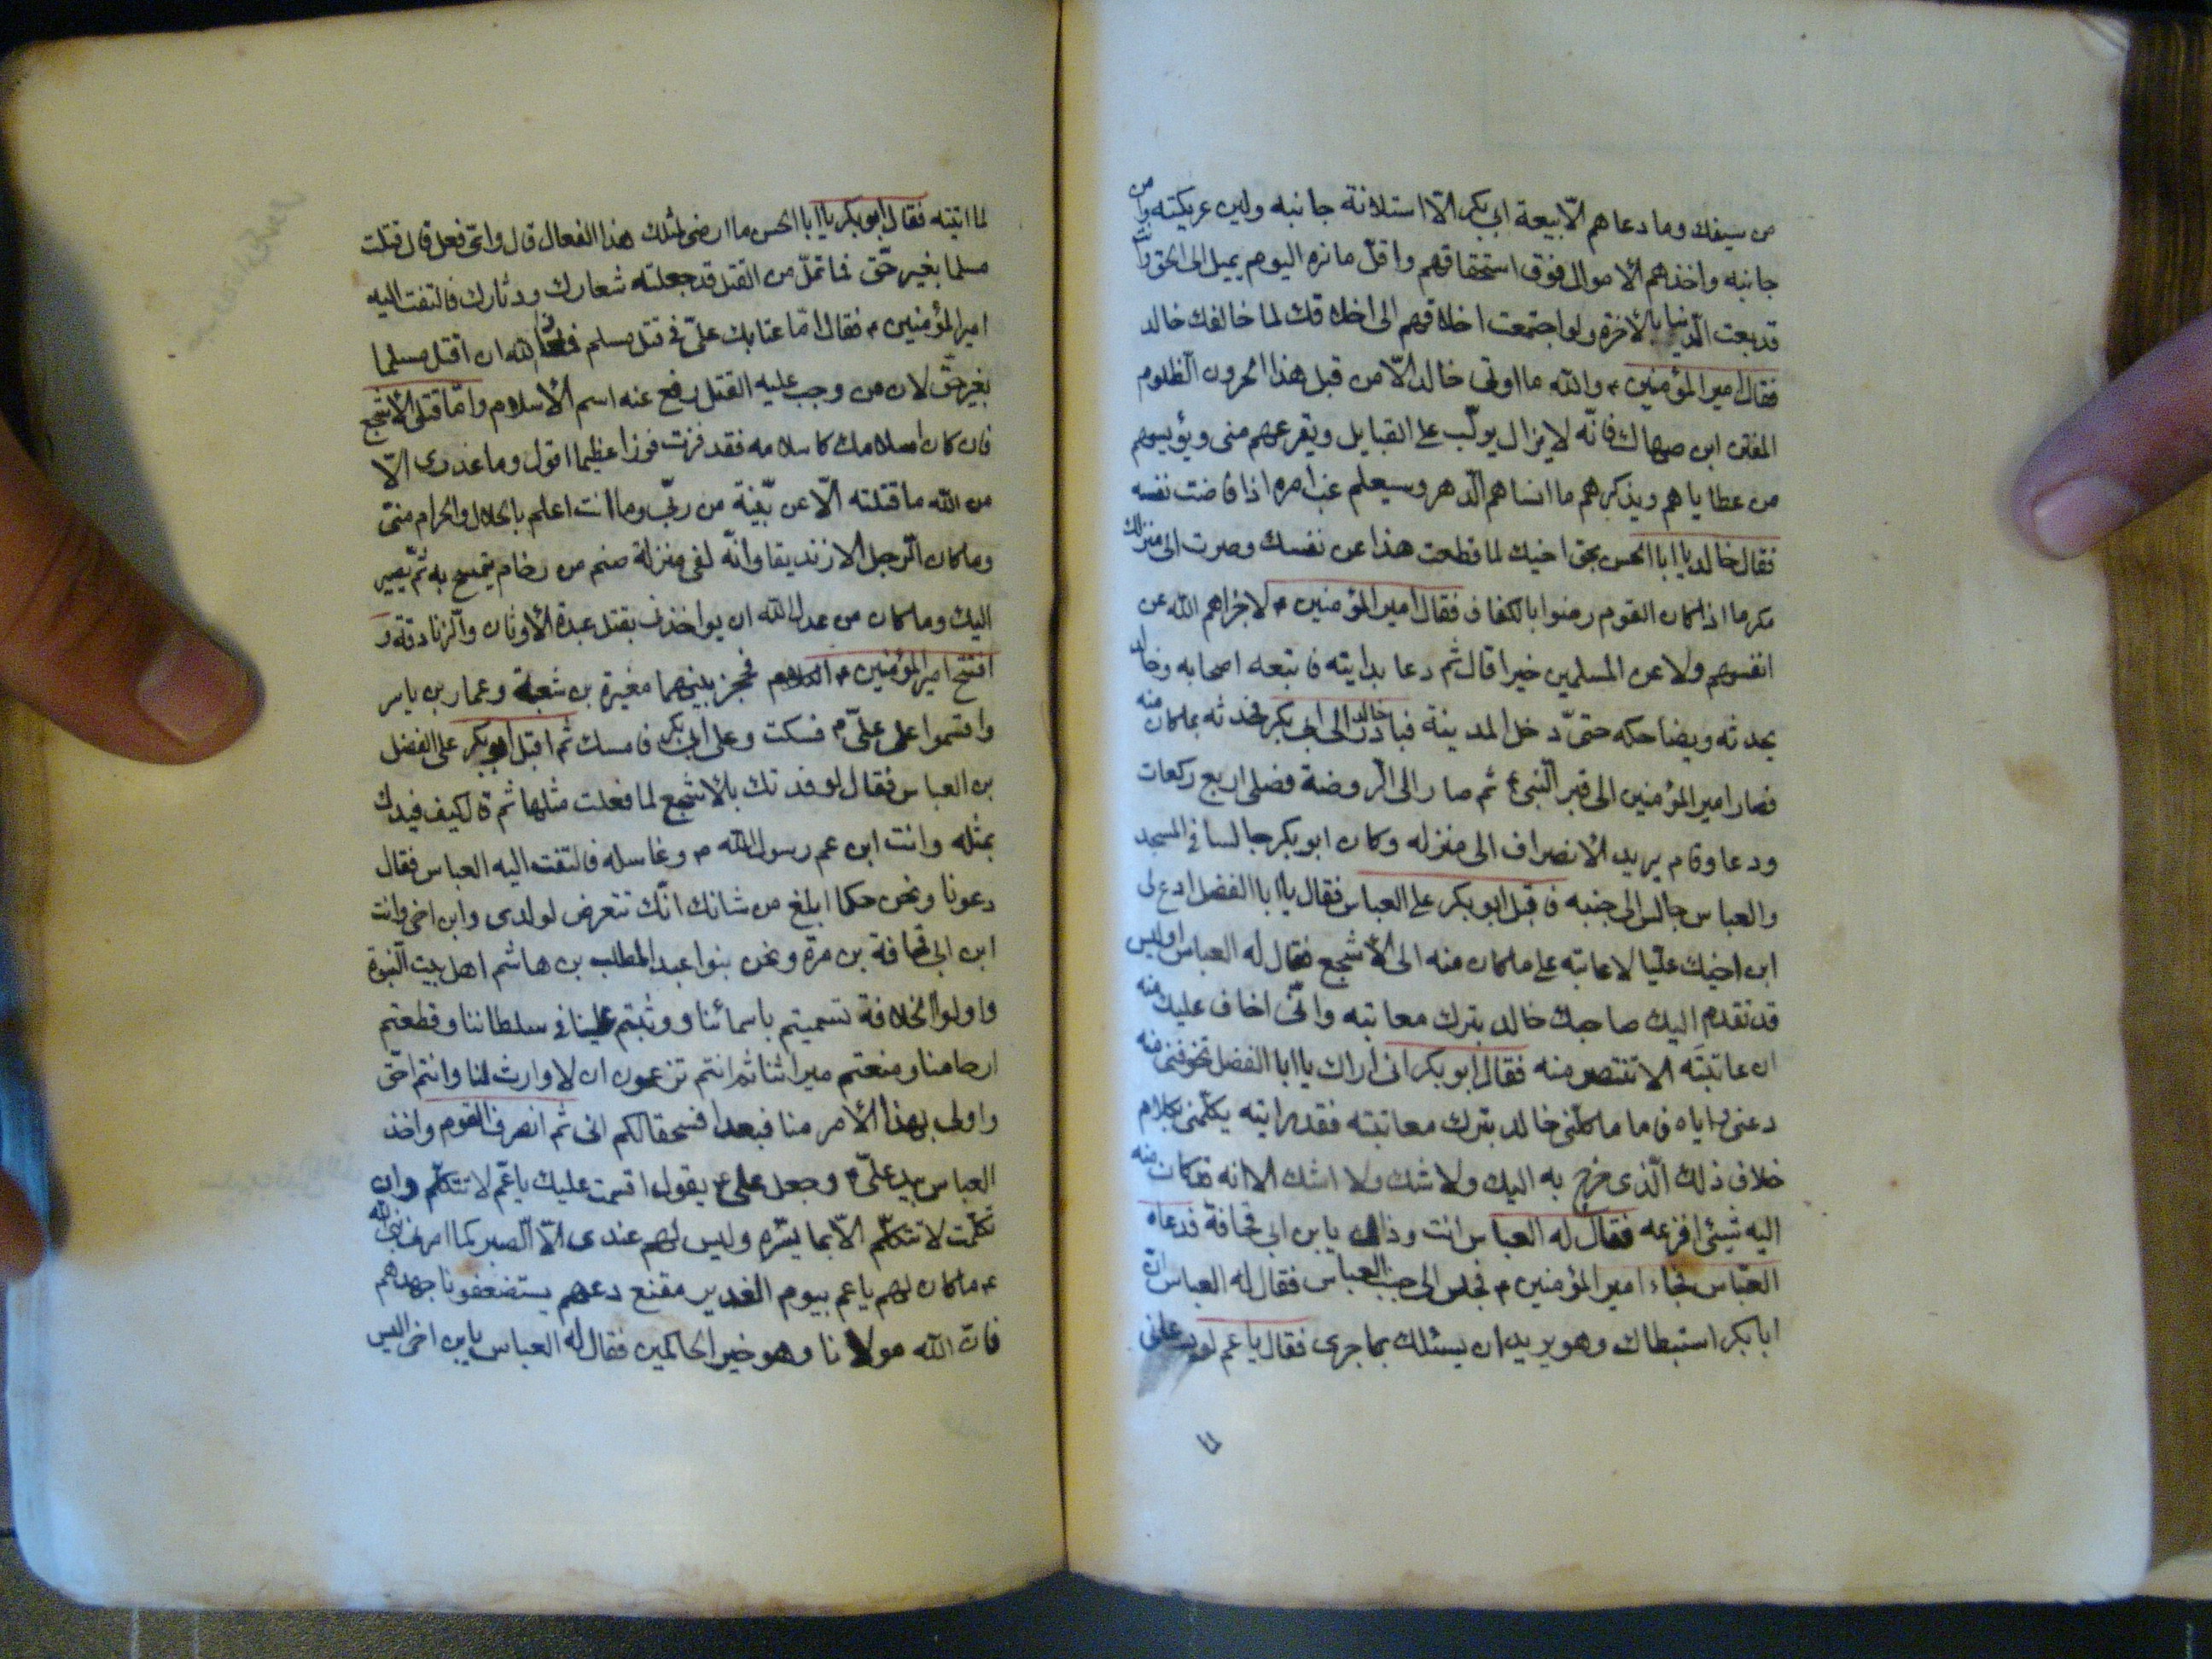 من سيفك وما دعاهم الّا بيعة ابى بكر الّا استلانة جانبه ولين عريكته وامن
جانبه واخذهم الاموال فوق استحقاقهم واقلّ ما نره اليوم يميل الى الحق وانت
قد بعت الدنيا بالاخرة ولو اجتمعت اخلاقهم الى اخلاقك لما خالفك خالد
فقال امير المؤمنين م والله ما اوتى خالد الّا من قبل هذا الحرون الظلوم
المفتن ابن صهاك فانّه لا يزال يولّب على القبايل ويفزعهم منى ويؤيسهم
من عطاياهم ويذكرهم ما انساهم الدهر وسيعلم غب امره اذا فاضت نفسه
فقال خالد يا ابا الحسن بحق اخيك لما قطعت هذا عن نفسك وصرت الى منزلك
مكرما اذا كان القوم رضوا بالكفاف فقال امير المؤمنين م لا جزاهم الله عن
انفسهم ولا عن المسلمين خيرا قال ثم دعا بدابته فاتبعه اصحابه وخالد
يحدثه ويضاحكه حتىّ دخل المدينة فبادر خالد الى ابى بكر فحدثه بما كان منه
فصار امير المؤمنين الى قبر النبى ع ثم صار الى الروضة فصلى اربع ركعات
ودعا وقام يريد الانصراف الى منزله وكان ابو بكر جالسا فى المسجد
والعباس جالس الى جنبه فاقبل ابو بكر على العباس فقال يا ابا الفضل ادع لى
ابن اخيك عليّا لاعاتبه على ما كان منه الى الاشجع فقال له العباس اوليس
قد تقدم اليك صاحبك خالد بترك معاتبته وانّى اخاف عليك منه
ان عاتبته الا تنتصر منه فقال ابو بكر انى اراك يا ابا الفضل تخوفنى منه
دعنى واياه فاما ما كلّمنى خالد بترك معاتبته فقد رايته يكلّمنى بكلام
خلاف ذلك الّذى خرج به اليك ولا شك ولا اشك الا انه قد كان منه
اليه شيئ افزعه فقال له العباس انت وذاك يابن ابى قحافة فدعاه
العبّاس فجاء امير المؤمنين م فجلس الى جنب العباس فقال له العباس ان
ابا بكر استبطاك وهو يريد ان يسئلك بما جرى فقال يا عم لو دعانى
لما اتيته فقال ابو بكر يا ابا الحسن ما ارضى لمثلك هذا الفعال قال واىّ فعل قال قتلت
مسلما بغير حّق فما تملّ من القتل قد جعلته شعارك ودثارك فالتفت اليه
امير المؤمنين م فقال امّا عتابك علىّ فى قتل مسلم فمعاذ الله ان اقتل مسلما
بغير حقّ لان من وجب عليه القتل رفع عنه اسم الاسلام وامّا قتلى الاشجع
فان كان اسلامك كاسلامه فقد فزت فوزا عظيما اقول وما عذرى الّا
من الله ما قتلته الّا عن بيّنة من ربّى وما انت اعلم بالحلال والحرام منىّ
وما كان الرجل الا زنديقا وانّه لفى منزلة صنم من رخام يتمسح به ثم يصير
اليك وما كان من عدل الله ان يواخذنى بقتل عبدة الاوثان والزنادقة و
افتتح امير المؤمنين م فحجز بينهما مغيرة بن شعبة وعمار بن ياسر
واقسموا على علىّ م فسكت وعلى ابى بكر فامسك ثم اقبل ابو بكر على الفضل
بن العباس فقال لو قدتك بالاشجع لما فعلت مثلها ثم قال كيف قيدك
بمثله وانت ابن عم رسول الله م وغاسله فالتفت اليه العباس فقال
دعونا ونحن حكما ابلغ من شانك انّك تتعرض لولدى وابن اخى وانت
ابن ابى قحافة بن مرّة ونحن بنوا عبد المطلب بن هاشم اهل بيت النبوة
واولوا الخلافة تسميتم باسمائنا ووثبتم علينا فى سلطاننا وقطعتم
ارحامنا ومنعتم ميراثنا ثم انتم تزعمون ان لا وارث لنا وانتم احقّ
واولى بهذا الامر منا فبعدا فسحقا لكم انى ثم انصرف القوم واخذ
العباس بيد علىّ م وجعل علىّ ع يقول اقسمت عليك يا عّم لا تتكلّم وان
تكلّمت لا تتكلّم الّا بما يسّره وليس لهم عندى الّا الصبر كما امرنى نبى الله
م ما كان لهم يا عم بيوم الغدير مقنع دعهم يستضعفونا جهدهم
فانّ الله مولانا وهو خير الحاكمين فقال له العباس يابن اخى اليس